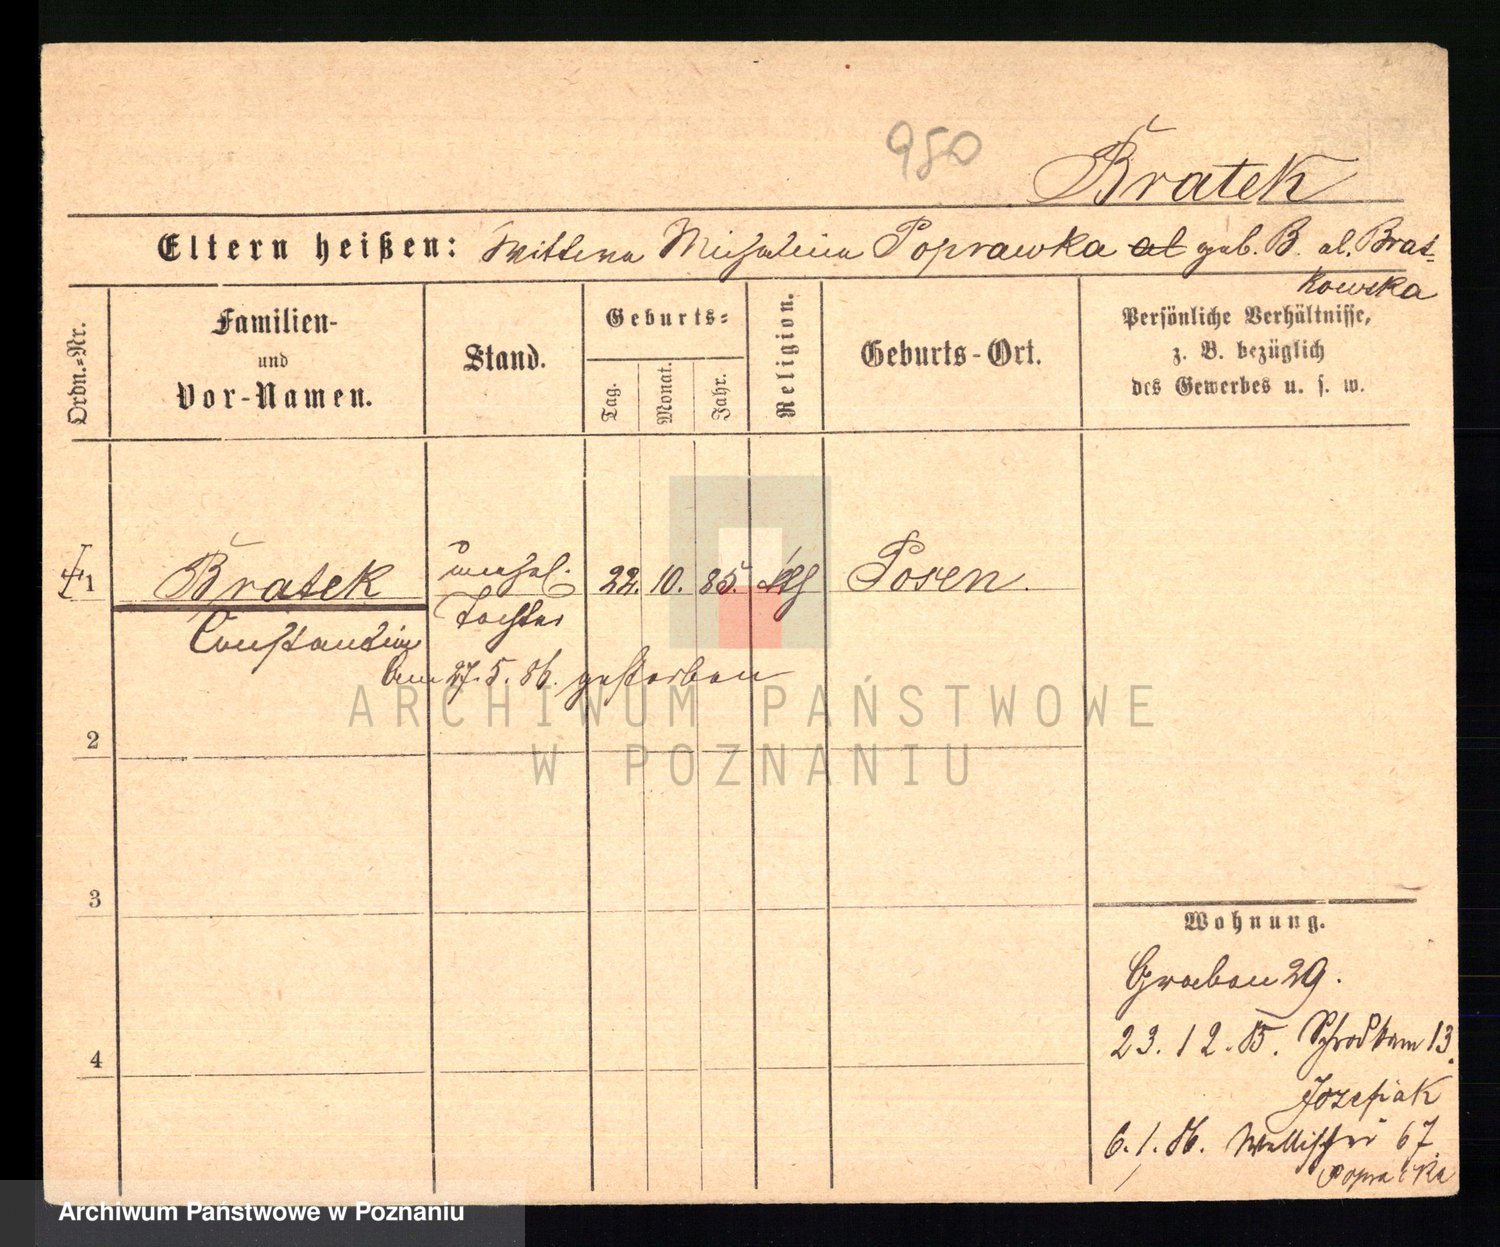 950
Bratek
Eltern heißen: Wittwe Michalina Poprawka al geb. B. al. Brat-
kowska
Ordn.-Nr.
Familien-
und
Vor-Namen.
Stand.
Geburts-
Tag.
Monat.
Jahr.
Religion.
Geburts-Ort.
Persönliche Verhältnisse,
z. B. bezüglich
des Gewerbes u. s. w.
1 Bratek unehel. 22. 10. 85. kth Posen.
Constantia Tochter
am 27. 5. 86. gestorben
ARCHIWUM PAŃSTWOWE
W POZNANIU
2
3
4
Wohnung.
Graben 29.
23. 12. 85. Schrodkam 13.
Jozefiak
6. 1. 86. Wallischei 67.
Archiwum Państwowe w Poznaniu